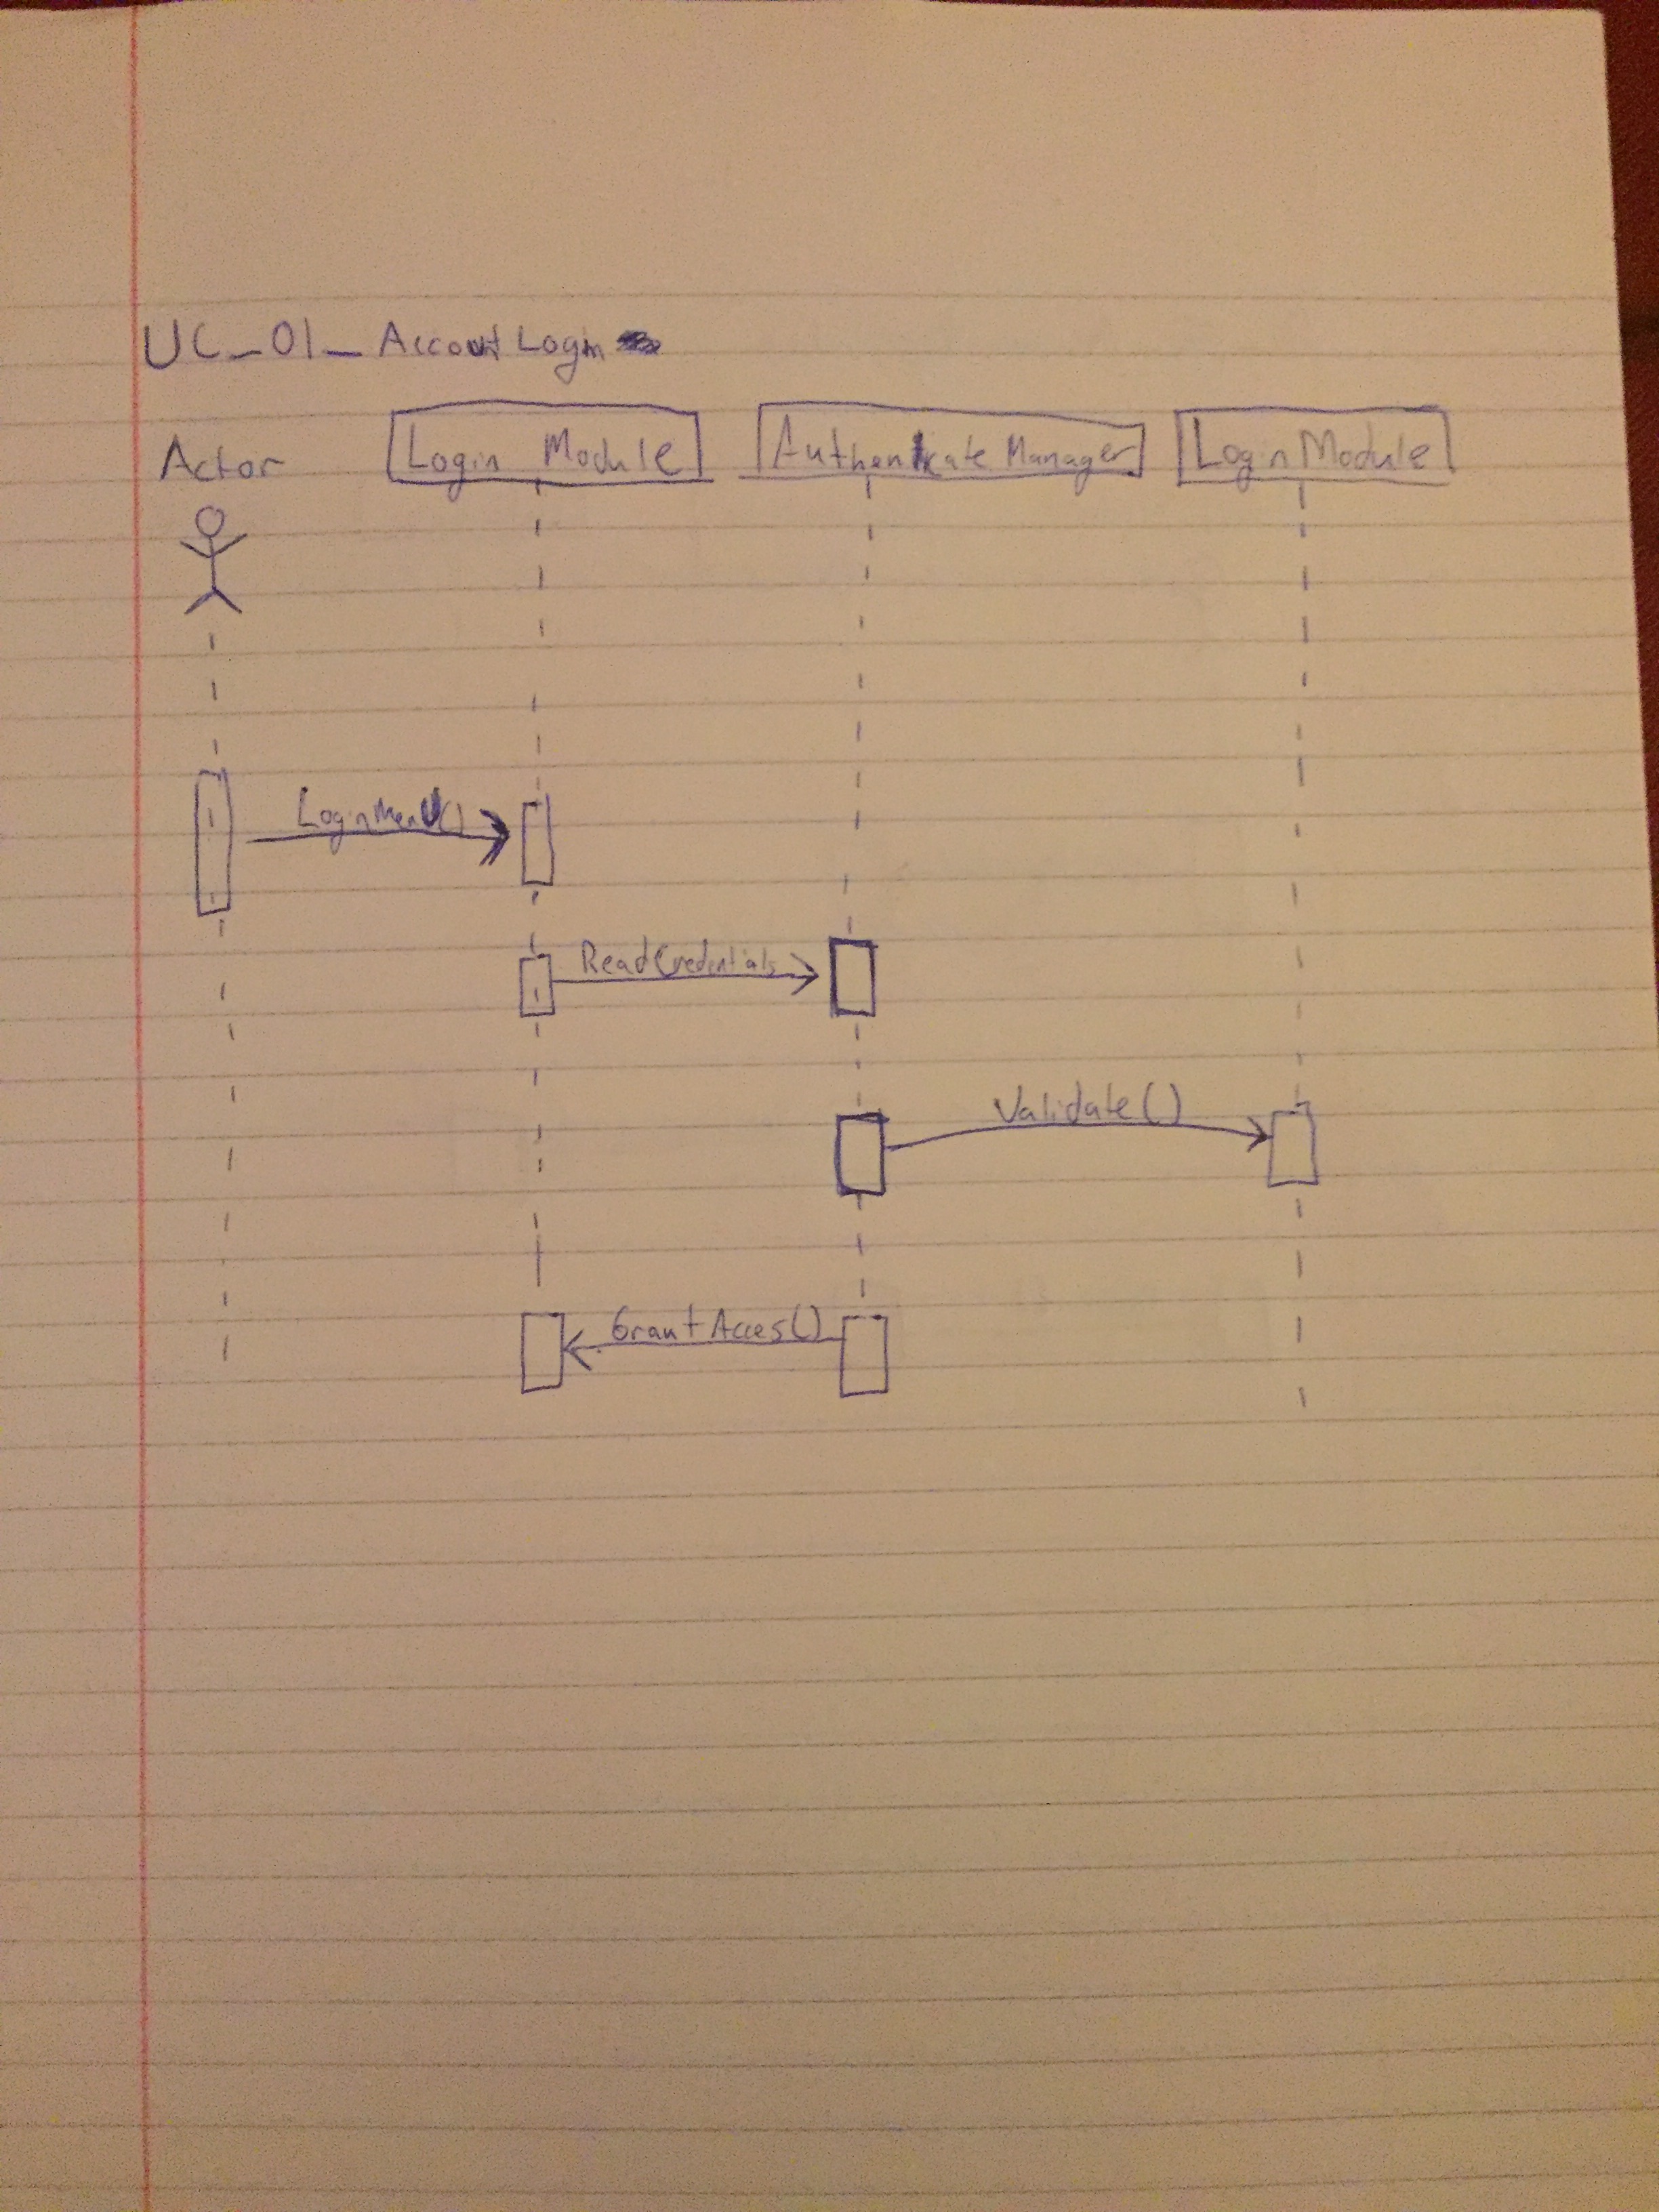 UC_01_AccountLogin
Actor Login Module AuthenticateManager LoginModule
LoginMenu()
ReadCredentials
Validate()
GrantAcces()